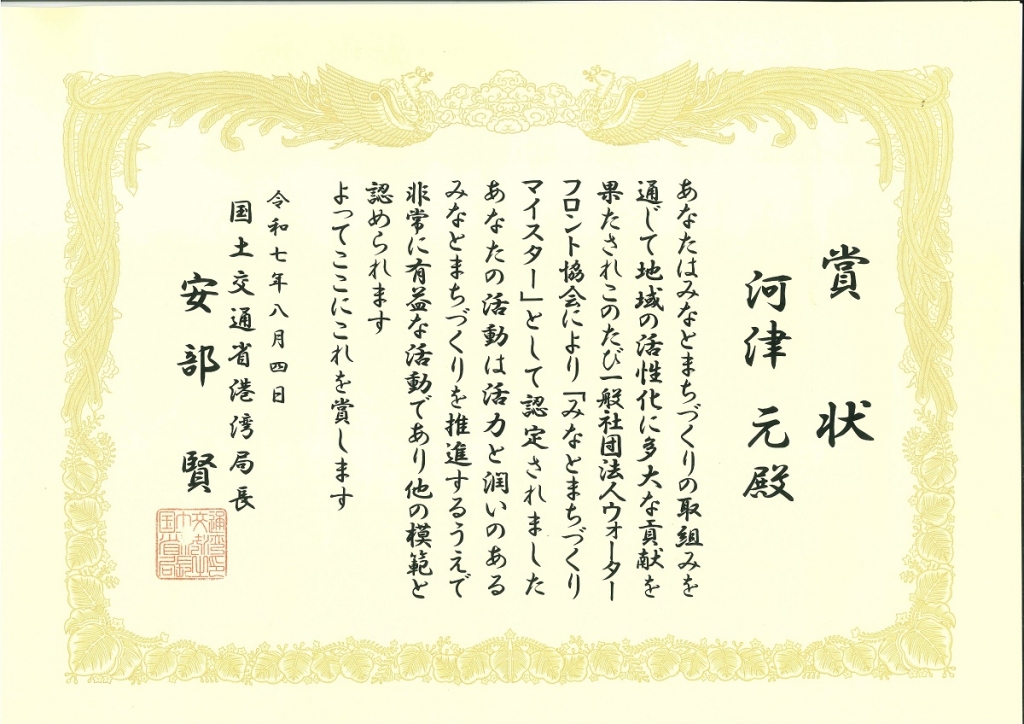 賞状
河津 元殿
あなたはみなとまちづくりの取組みを
通じて地域の活性化に多大な貢献を
果たされこのたび一般社団法人ウォーター
フロント協会により「みなとまちづくり
マイスター」として認定されました
あなたの活動は活力と潤いのある
みなとまちづくりを推進するうえで
非常に有益な活動であり他の模範と
認められます
よってここにこれを賞します
令和七年八月四日
国土交通省港湾局長
安部 賢